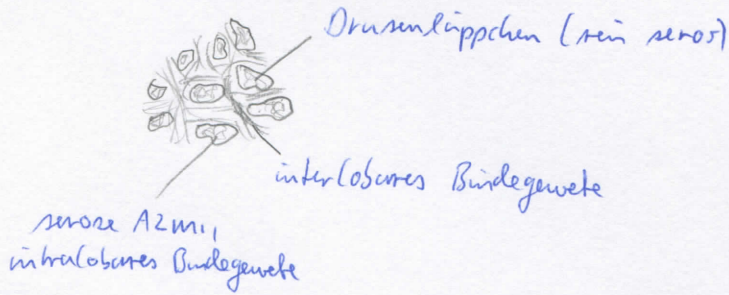 Drüsenläppchen (rein serös)
interlobäres Bindegewebe
seröse Azini,
intralobäres Bindegewebe